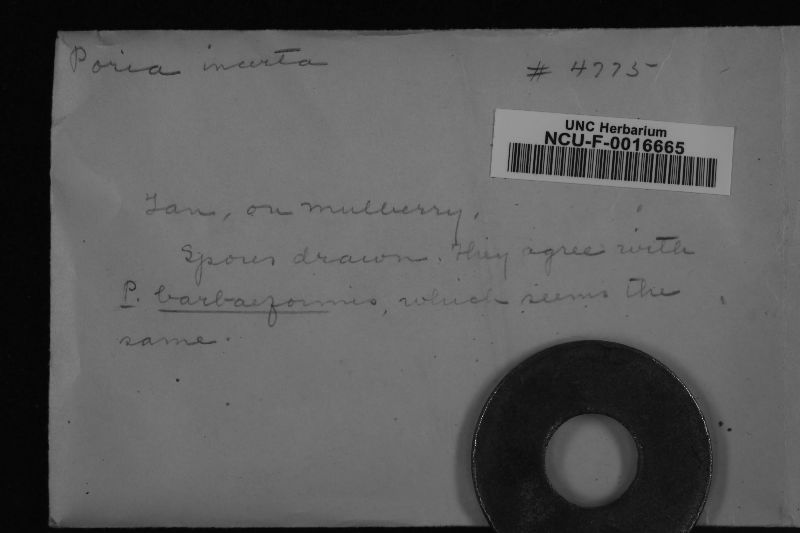 Poria incerta
# 4775
UNC Herbarium
NCU-F-0016665
Tan, on mulberry.
Spores drawn. They agree with
P. barbaeformis, which seems the
same.